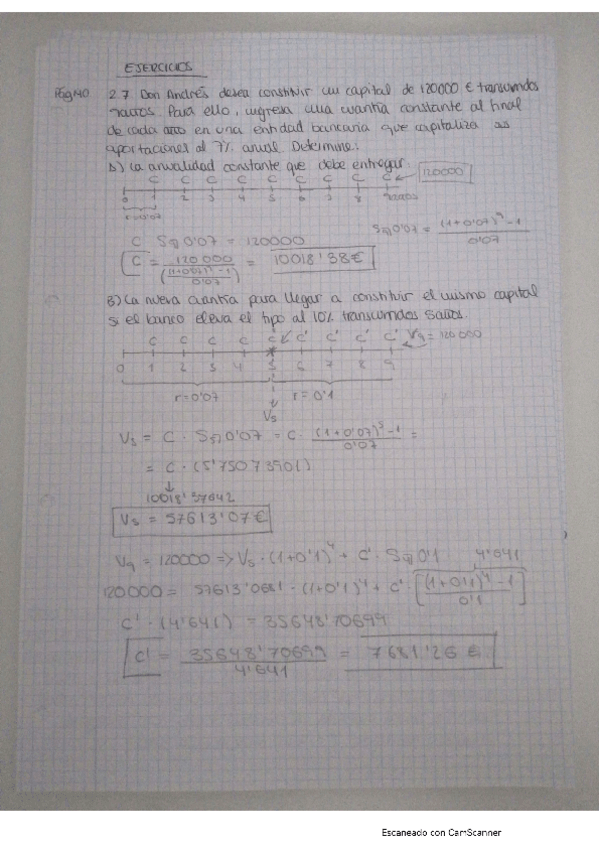 EJERCICIOS
Pág 140 2.7 Don Andrés desea constituir un capital de 120000 € transcurridos
9 años. Para ello, ingresa una cuantía constante al final
de cada año en una entidad bancaria que capitaliza sus
aportaciones al 7% anual. Determine:
A) La anualidad constante que debe entregar.
C C C C C C C C C 120000
0 1 2 3 4 5 6 7 8 9 años
r=0'07
C S9¬0'07 = 120000
S9¬0'07 = (1+0'07)^9 - 1 / 0'07
C = 120000 / ((1+0'07)^9 - 1 / 0'07) = 10018'38€
B) La nueva cuantía para llegar a constituir el mismo capital
si el banco eleva el tipo al 10% transcurridos 5 años.
C C C C C C' C' C' C' V9 = 120000
0 1 2 3 4 5 6 7 8 9
r=0'07 r=0'1
V5
V5 = C · S5¬0'07 = C · (1+0'07)^5 - 1 / 0'07 =
= C · (5'75073901)
10018'37642
V5 = 57613'07€
V9 = 120000 => V5 · (1+0'1)^4 + C' · S4¬0'1 4'641
120000 = 57613'0681 · (1+0'1)^4 + C' [(1+0'1)^4 - 1 / 0'1]
C' · (4'641) = 35648'70699
C' = 35648'70699 / 4'641 = 7681'26 €
Escaneado con CamScanner